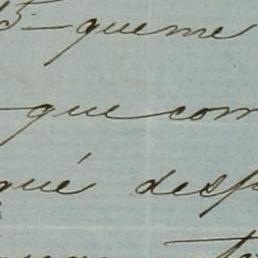 15 - que me
- que com
qué desp